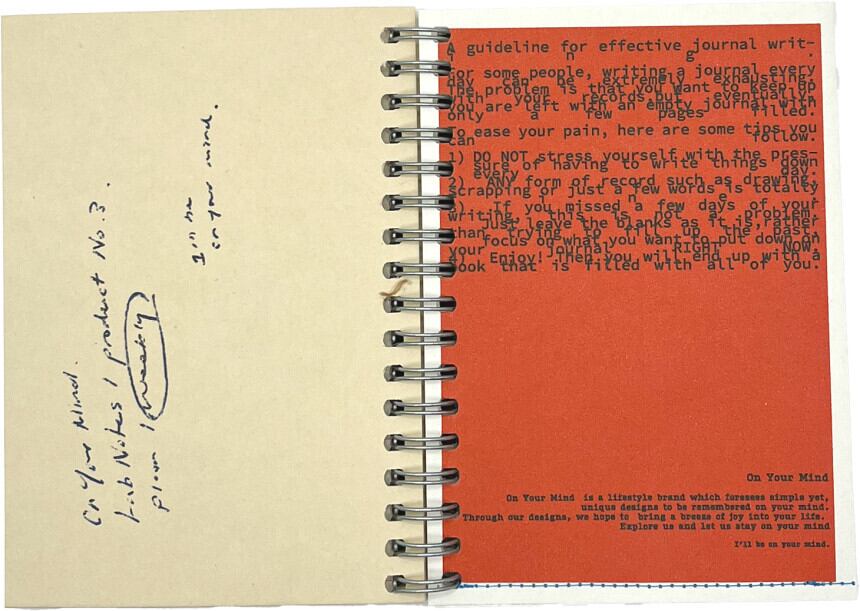 On Your Mind.
Lab Notes / product No.3.
plan / weekly
I'll be
on your mind.
A guideline for effective journal writ-
i n g .
For some people, writing a journal every
day can be extremely exhausting.
The problem is that you want to keep up
with your records,but eventually,
you are left with an empty journal with
only a few pages filled.
To ease your pain, here are some tips you
can follow.
1) DO NOT stress yourself with the pres-
sure of having to write things down
every day.
2) ANY form of record such as drawing,
scrapping or just a few words is totally
f i n e .
3) If you missed a few days of your
writing, this is not a problem.
Just leave the blanks as it is,rather
than trying to fill up the past,
focus on what you want to put down on
your journal RIGHT NOW.
4) Enjoy! Then you will end up with a
book that is filled with all of you.
On Your Mind
On Your Mind is a lifestyle brand which foresees simple yet,
unique designs to be remembered on your mind.
Through our designs, we hope to bring a breeze of joy into your life.
Explore us and let us stay on your mind
I'll be on your mind.